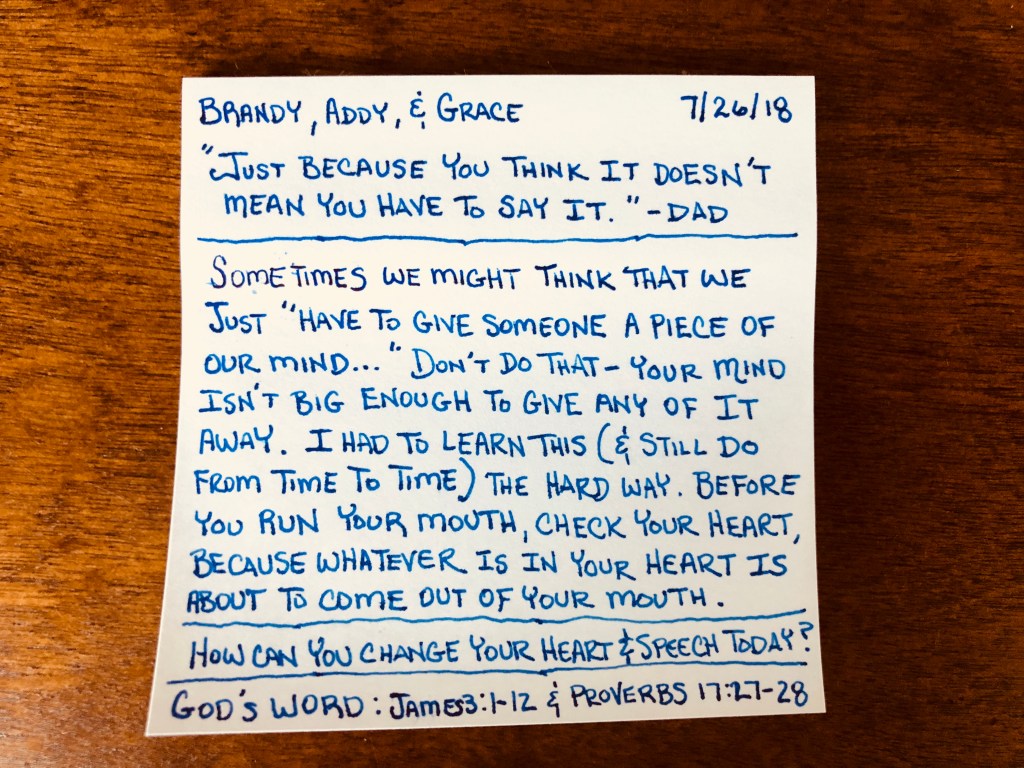 BRANDY, ADDY, & GRACE 7/26/18
"JUST BECAUSE YOU THINK IT DOESN'T
MEAN YOU HAVE TO SAY IT." - DAD
SOMETIMES WE MIGHT THINK THAT WE
JUST "HAVE TO GIVE SOMEONE A PIECE OF
OUR MIND..." DON'T DO THAT - YOUR MIND
ISN'T BIG ENOUGH TO GIVE ANY OF IT
AWAY. I HAD TO LEARN THIS (& STILL DO
FROM TIME TO TIME) THE HARD WAY. BEFORE
YOU RUN YOUR MOUTH, CHECK YOUR HEART,
BECAUSE WHATEVER IS IN YOUR HEART IS
ABOUT TO COME OUT OF YOUR MOUTH.
HOW CAN YOU CHANGE YOUR HEART & SPEECH TODAY?
GOD'S WORD: JAMES 3:1-12 & PROVERBS 17:27-28